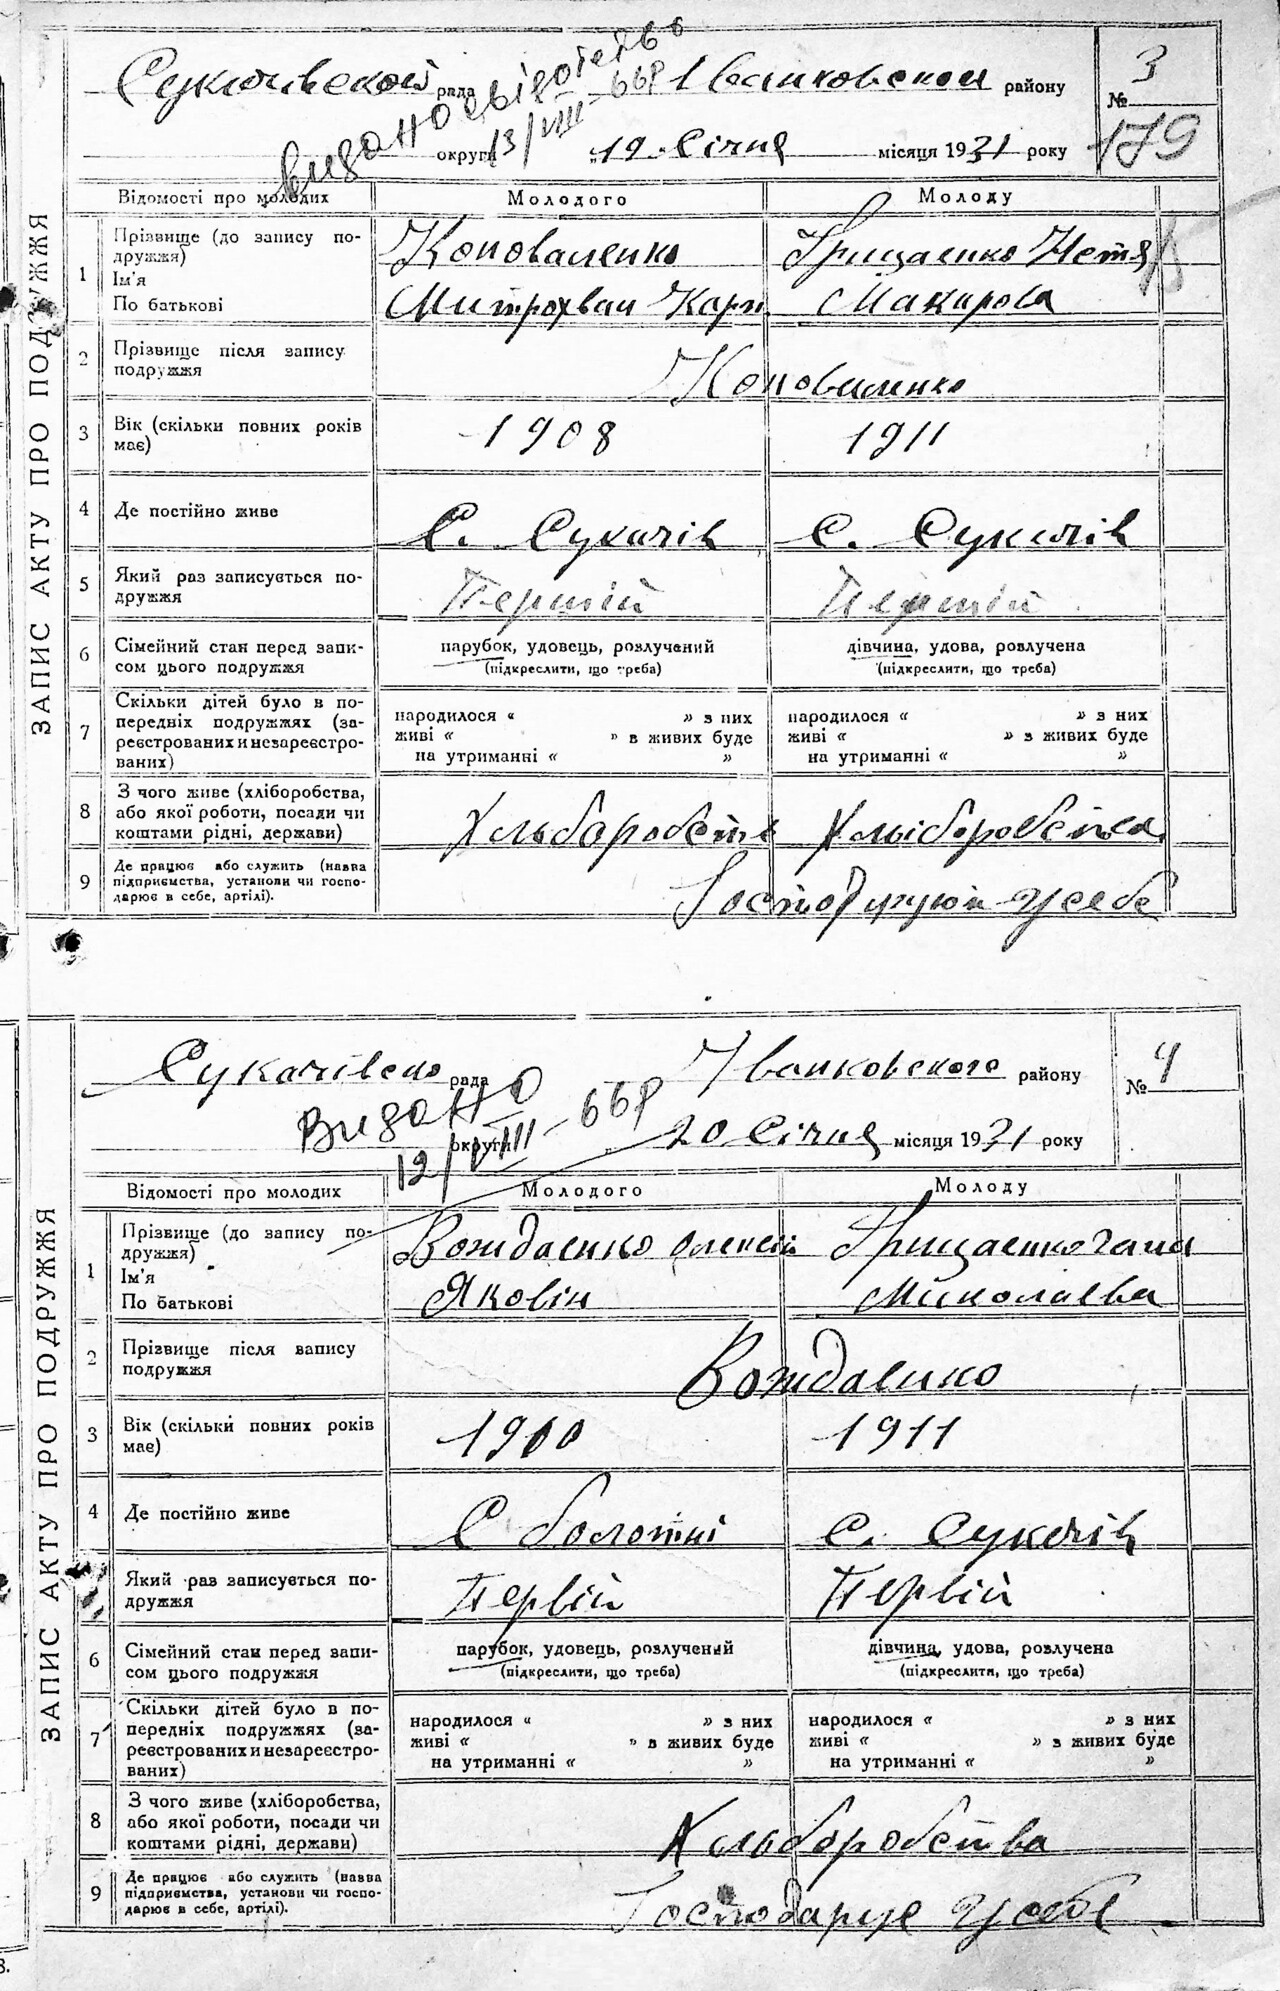 Сукачівской рада Иванковском району
№ 3
видано свідотство
13/VIII-668
округи „19 Січня місяця 1931 року
179
ЗАПИС АКТУ ПРО ПОДРУЖЖЯ
Відомості про молодих Молодого Молоду
1 Прізвище (до запису по-
дружжя)
Ім'я
По батькові
Коноваленко Грицаенко Настя
Митрохван Карп. Макарова
2 Прізвище після запису
подружжя
Коноваленко
3 Вік (скільки повних років
має)
1908 1911
4 Де постійно живе
С. Сукачів С. Сукачів
5 Який раз записується по-
дружжя
Першій Першій
6 Сімейний стан перед запи-
сом цього подружжя
парубок, удовець, розлучений дівчина, удова, розлучена
(підкреслити, що треба) (підкреслити, що треба)
7 Скільки дітей було в по-
передніх подружжях (за-
реєстрованих и незареєстро-
ваних)
народилося “ ” з них народилося “ ” з них
живі “ ” в живих буде живі “ ” з живих буде
на утриманні “ ” на утриманні “ ”
8 З чого живе (хліборобства,
або якої роботи, посади чи
коштами рідні, держави)
Хльборобств Хльіборобства
9 Де працює або служить (назва
підприємства, установи чи госпо-
дарює в себе, артілі).
Господарують усебе
Сукачівско рада Иванковского району
№ 4
Видано
12/VIII-668
округи „20 Січня місяця 1931 року
ЗАПИС АКТУ ПРО ПОДРУЖЖЯ
Відомості про молодих Молодого Молоду
1 Прізвище (до запису по-
дружжя)
Ім'я
По батькові
Вождаенко Олексій Грицаенко Гана
Яковін Миколаєва
2 Прізвище після запису
подружжя
Вождаенко
3 Вік (скільки повних років
має)
1910 1911
4 Де постійно живе
С болотні С. Сукачів
5 Який раз записується по-
дружжя
Первій Первій
6 Сімейний стан перед запи-
сом цього подружжя
парубок, удовець, розлучений дівчина, удова, розлучена
(підкреслити, що треба) (підкреслити, що треба)
7 Скільки дітей було в по-
передніх подружжях (за-
реєстрованих и незареєстро-
ваних)
народилося “ ” з них народилося “ ” з них
живі “ ” в живих буде живі “ ” з живих буде
на утриманні “ ” на утриманні “ ”
8 З чого живе (хліборобства,
або якої роботи, посади чи
коштами рідні, держави)
Хльборобства
9 Де працює або служить (назва
підприємства, установи чи госпо-
дарює в себе, артілі).
Господарує усебе